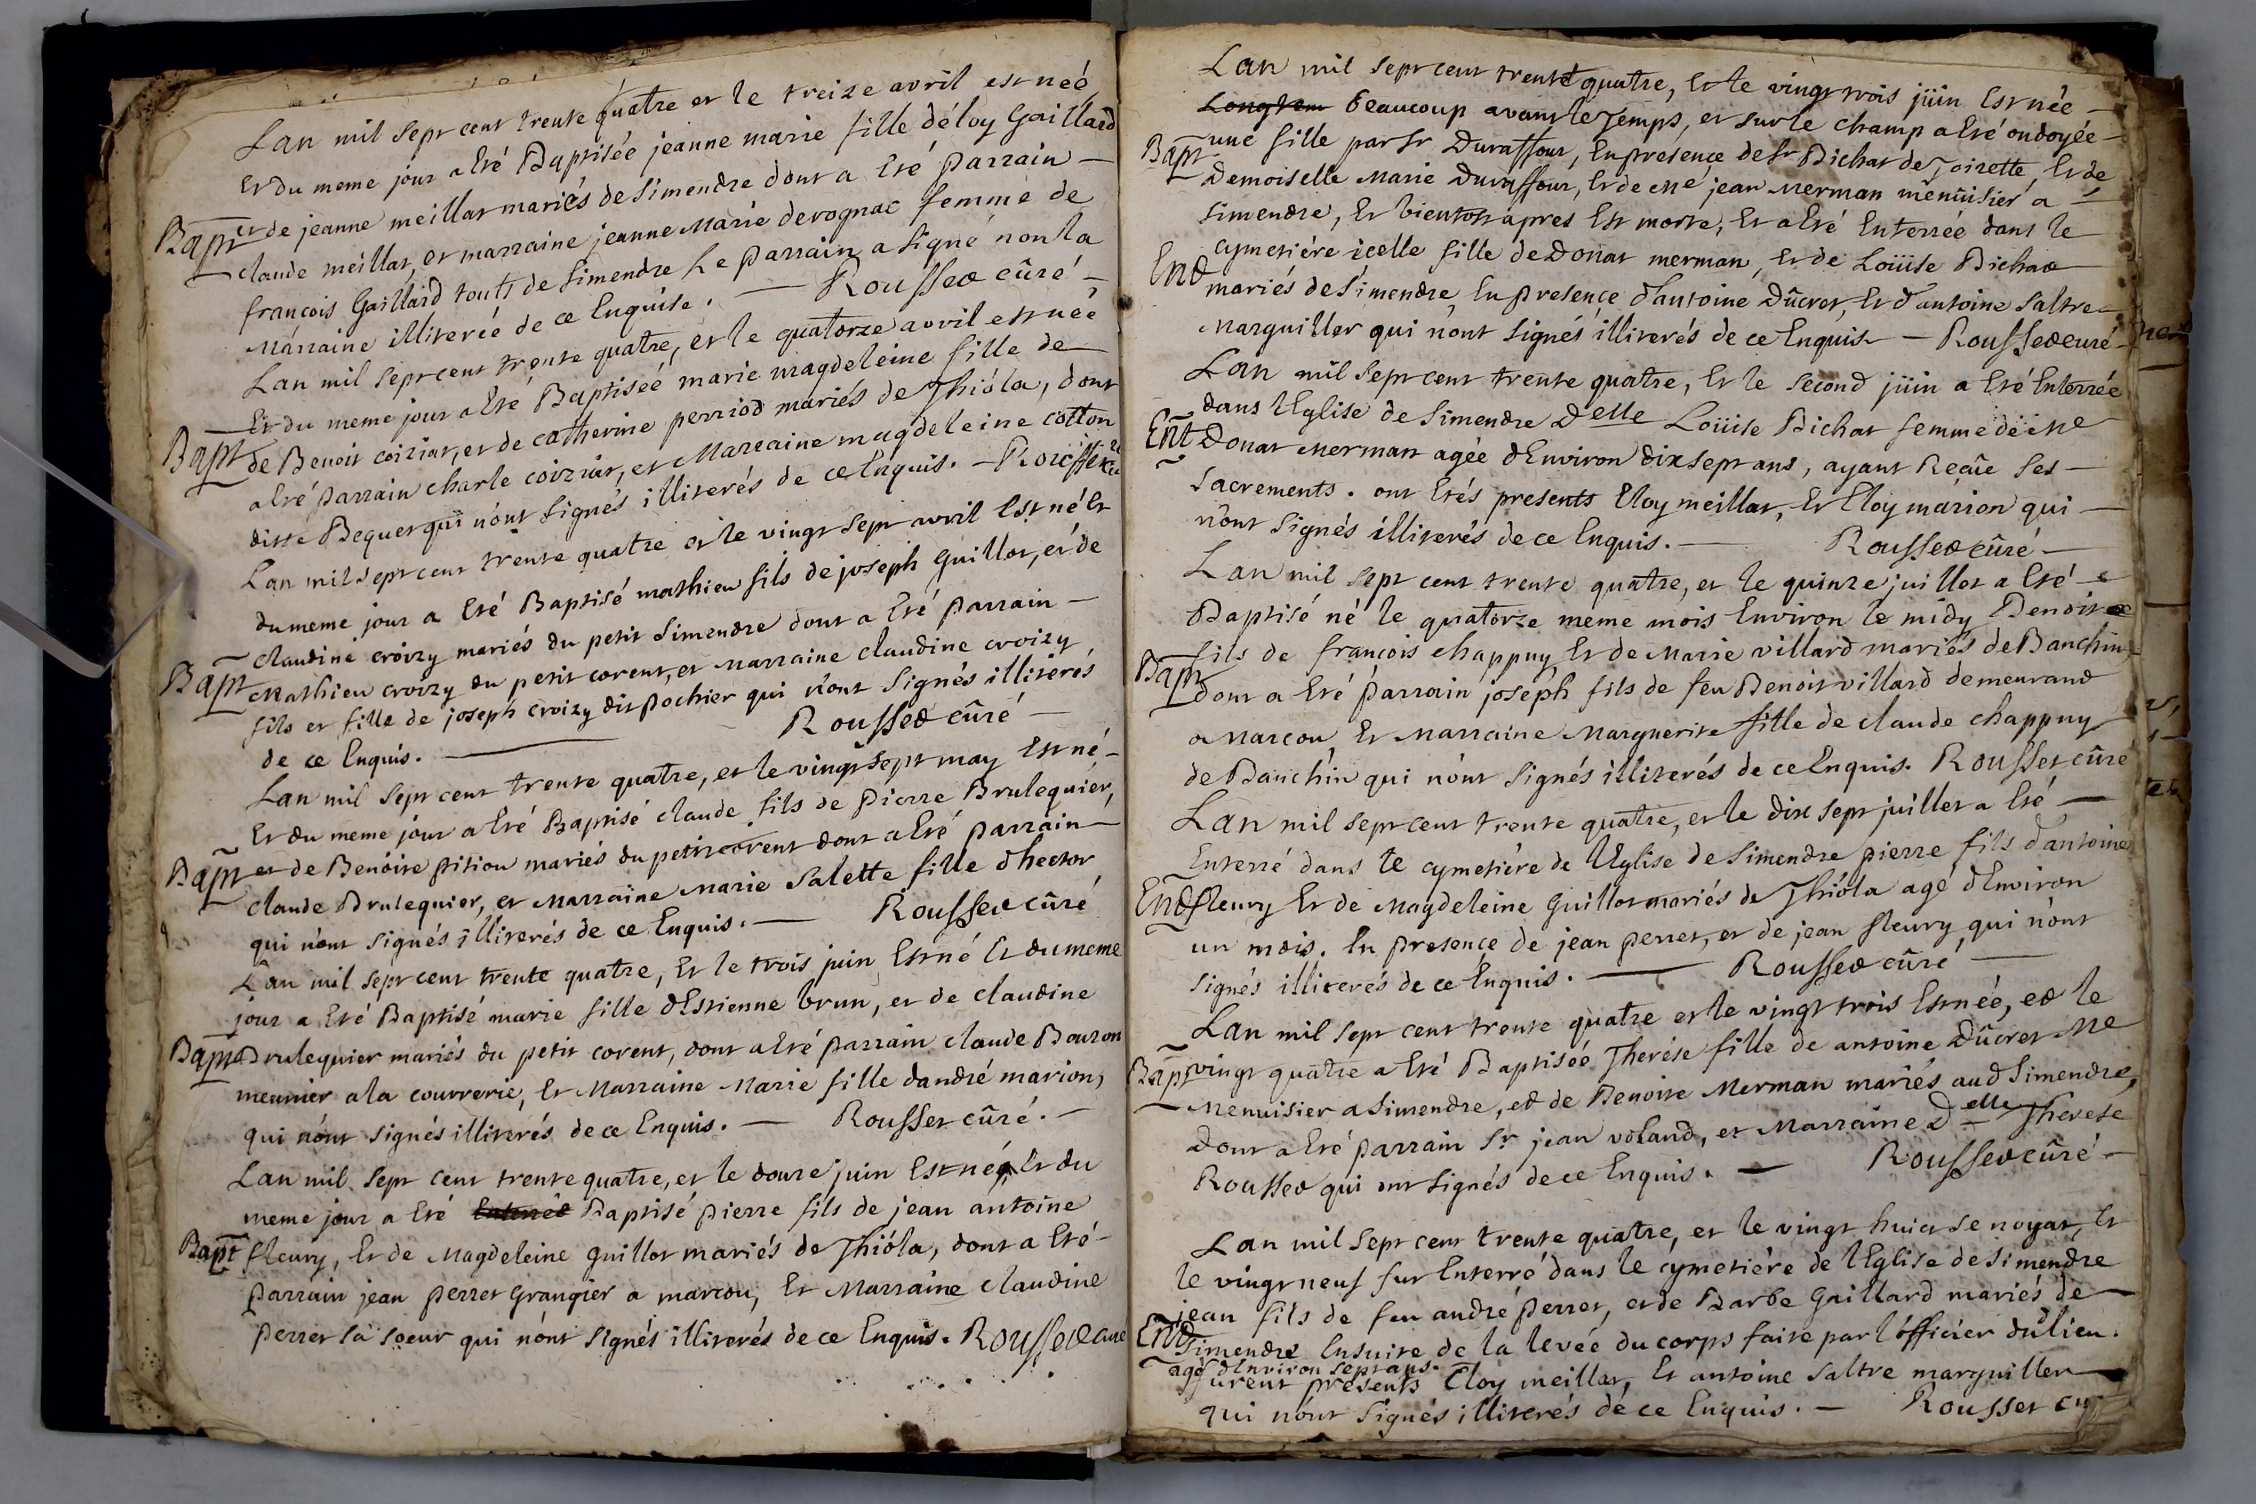 Lan mil sept cent trente quatre et le treize avril est née
Et du meme jour a Eté Baptisée jeanne marie fille déloy Gaillard
Bapt et de jeanne meillat mariés de Simendre dont a Eté parrain —
claude meillat, et marraine jeanne Marie derognac femme de
francois Gaillard touts de Simendre Le parrain a signé non la
Marraine illiterée de ce Enquise. — Rousset cûré —
Lan mil sept cent trente quatre, et le quatorze avril est née
Et du meme jour a Eté Baptiseé marie magdeleine fille de
Bapt de Benoit coiziat, et de catherine perriod mariés de Thióla, dont
a Eté parrain charle coiziat, et Marraine magdeleine cotton
ditte Bequet qui n'ont signés illiterés de ce Enquis. — Rousset
Lan mil sept cent trente quatre et le vingt sept avril Est né Et
du meme jour a Eté Baptisé mathieu fils de joseph Guillot, et de
claudine croizy mariés du petit Simendre dont a Eté parrain —
Bapt Mathieu croizy du petit corent, et marraine claudine croizy
fils et fille de joseph croizy dit pochier qui n'ont signés illiterés
de ce Enquis. — Rousset cûré —
Lan mil sept cent trente quatre, et le vingt sept may Est né —
Et du meme jour a Eté Baptisé claude fils de pierre Brulequier,
Bapt et de Benoite pitiou mariés du petit corent dont a Eté parrain —
claude Brulequier, et Marraine Marie Salette fille d'hector
qui n'ont signés illiterés de ce Enquis. — Rousset cûré
Lan mil sept cent trente quatre, Et le trois juin Est né Et du meme
jour a Eté Baptisé marie fille dEstienne brun, et de claudine
Bapt Brulequier mariés du petit corent, dont a Eté parrain claude Bouzon
meunier a la courrerie, Et Marraine Marie fille dandré marion,
qui n'ont signés illiterés de ce Enquis. — Rousset cûré. —
Lan mil sept cent trente quatre, et le douze juin Est né, Et du
meme jour a Eté Enterréé Baptisé pierre fils de jean antoine
Bapt fleury, Et de Magdeleine guillot mariés de Thióla, dont a Eté —
parrain jean perret Grangier a marcou, Et Marraine claudine
perret sa soeur qui n'ont signés illiterés de ce Enquis. Rousset cure
Lan mil sept cent trente quatre, Et le vingt trois jüin Est née —
Longtem beaucoup avant le Temps, et sur le champ a Eté ondoyée —
Bapt une fille par Sr Duraffour, En presence de Sr Bichat de Toirette, Et de
Demoiselle Marie Duraffour, Et de Me jean Merman menuisier a —
Simendre, Et bientost apres Est morte, Et a Eté Enterrée dans le
End cymetiére icelle fille de Donat merman, Et de Loüise Bichat
mariés de Simendre, En presence d'antoine Dûcret, Et d'antoine Saltre
Marguiller qui n'ont signés illiterés de ce Enquis — Rousset curé
Lan mil sept cent trente quatre, Et le second jüin a Eté Enterrée
dans lEglise de Simendre Delle Loüise Bichat femme de Me
Ent Donat Merman agée dEnviron dix sept ans, ayant Reçüe ses —
Sacrements. ont Etés presents Eloy meillat, Et Eloy marion qui —
n'ont signés illiterés de ce Enquis. — Rousset cûré —
Lan mil sept cent trente quatre, et le quinze juillet a Eté —
Baptisé né le quatorze meme mois Environ le midy Benoit
Bapt fils de francois chappuy, Et de Marie villard mariés de Banchin
dont a Eté parrain joseph fils de feu Benoit villard demeurand
a Marcou, Et Marraine Marguerite fille de claude chappuy
de Banchin qui n'ont signés illiterés de ce Enquis. Rousset cûré
Lan mil sept cent trente quatre, et le dix sept juillet a Eté —
Enterré dans le cymetiére de lEglise de Simendre pierre fils d'antoine
End fleury Et de Magdeleine Guillot mariés de Thióla agé dEnviron
un mois. En presence de jean perret, et de jean fleury qui n'ont
signés illiterés de ce Enquis. — Rousset cûré —
Lan mil sept cent trente quatre et le vingt trois Est née, et le
Bapt vingt quatre a Eté Baptisée Therése fille de antoine Dûcret Me
Menuisier a Simendre, et de Benoite Merman mariés aud Simendre,
Dont a Eté parrain Sr jean voland, et Marraine Delle Therese
Rousset qui ont signés de ce Enquis. — Rousset cûré —
Lan mil sept cent trente quatre, et le vingt huict se noyat, Et
le vingt neuf fut Enterré dans le cymetiére de lEglise de Simendre
jean fils de feu andré perret, et de Barbe Gaillard mariés de
End Simendre Ensuite de la levée du corps faite par l'officier dud lieu.
agé dEnviron sept ans.
furent presents Eloy meillat, Et antoine Saltre marguiller
qui n'ont signés illiterés de ce Enquis. — Rousset cu